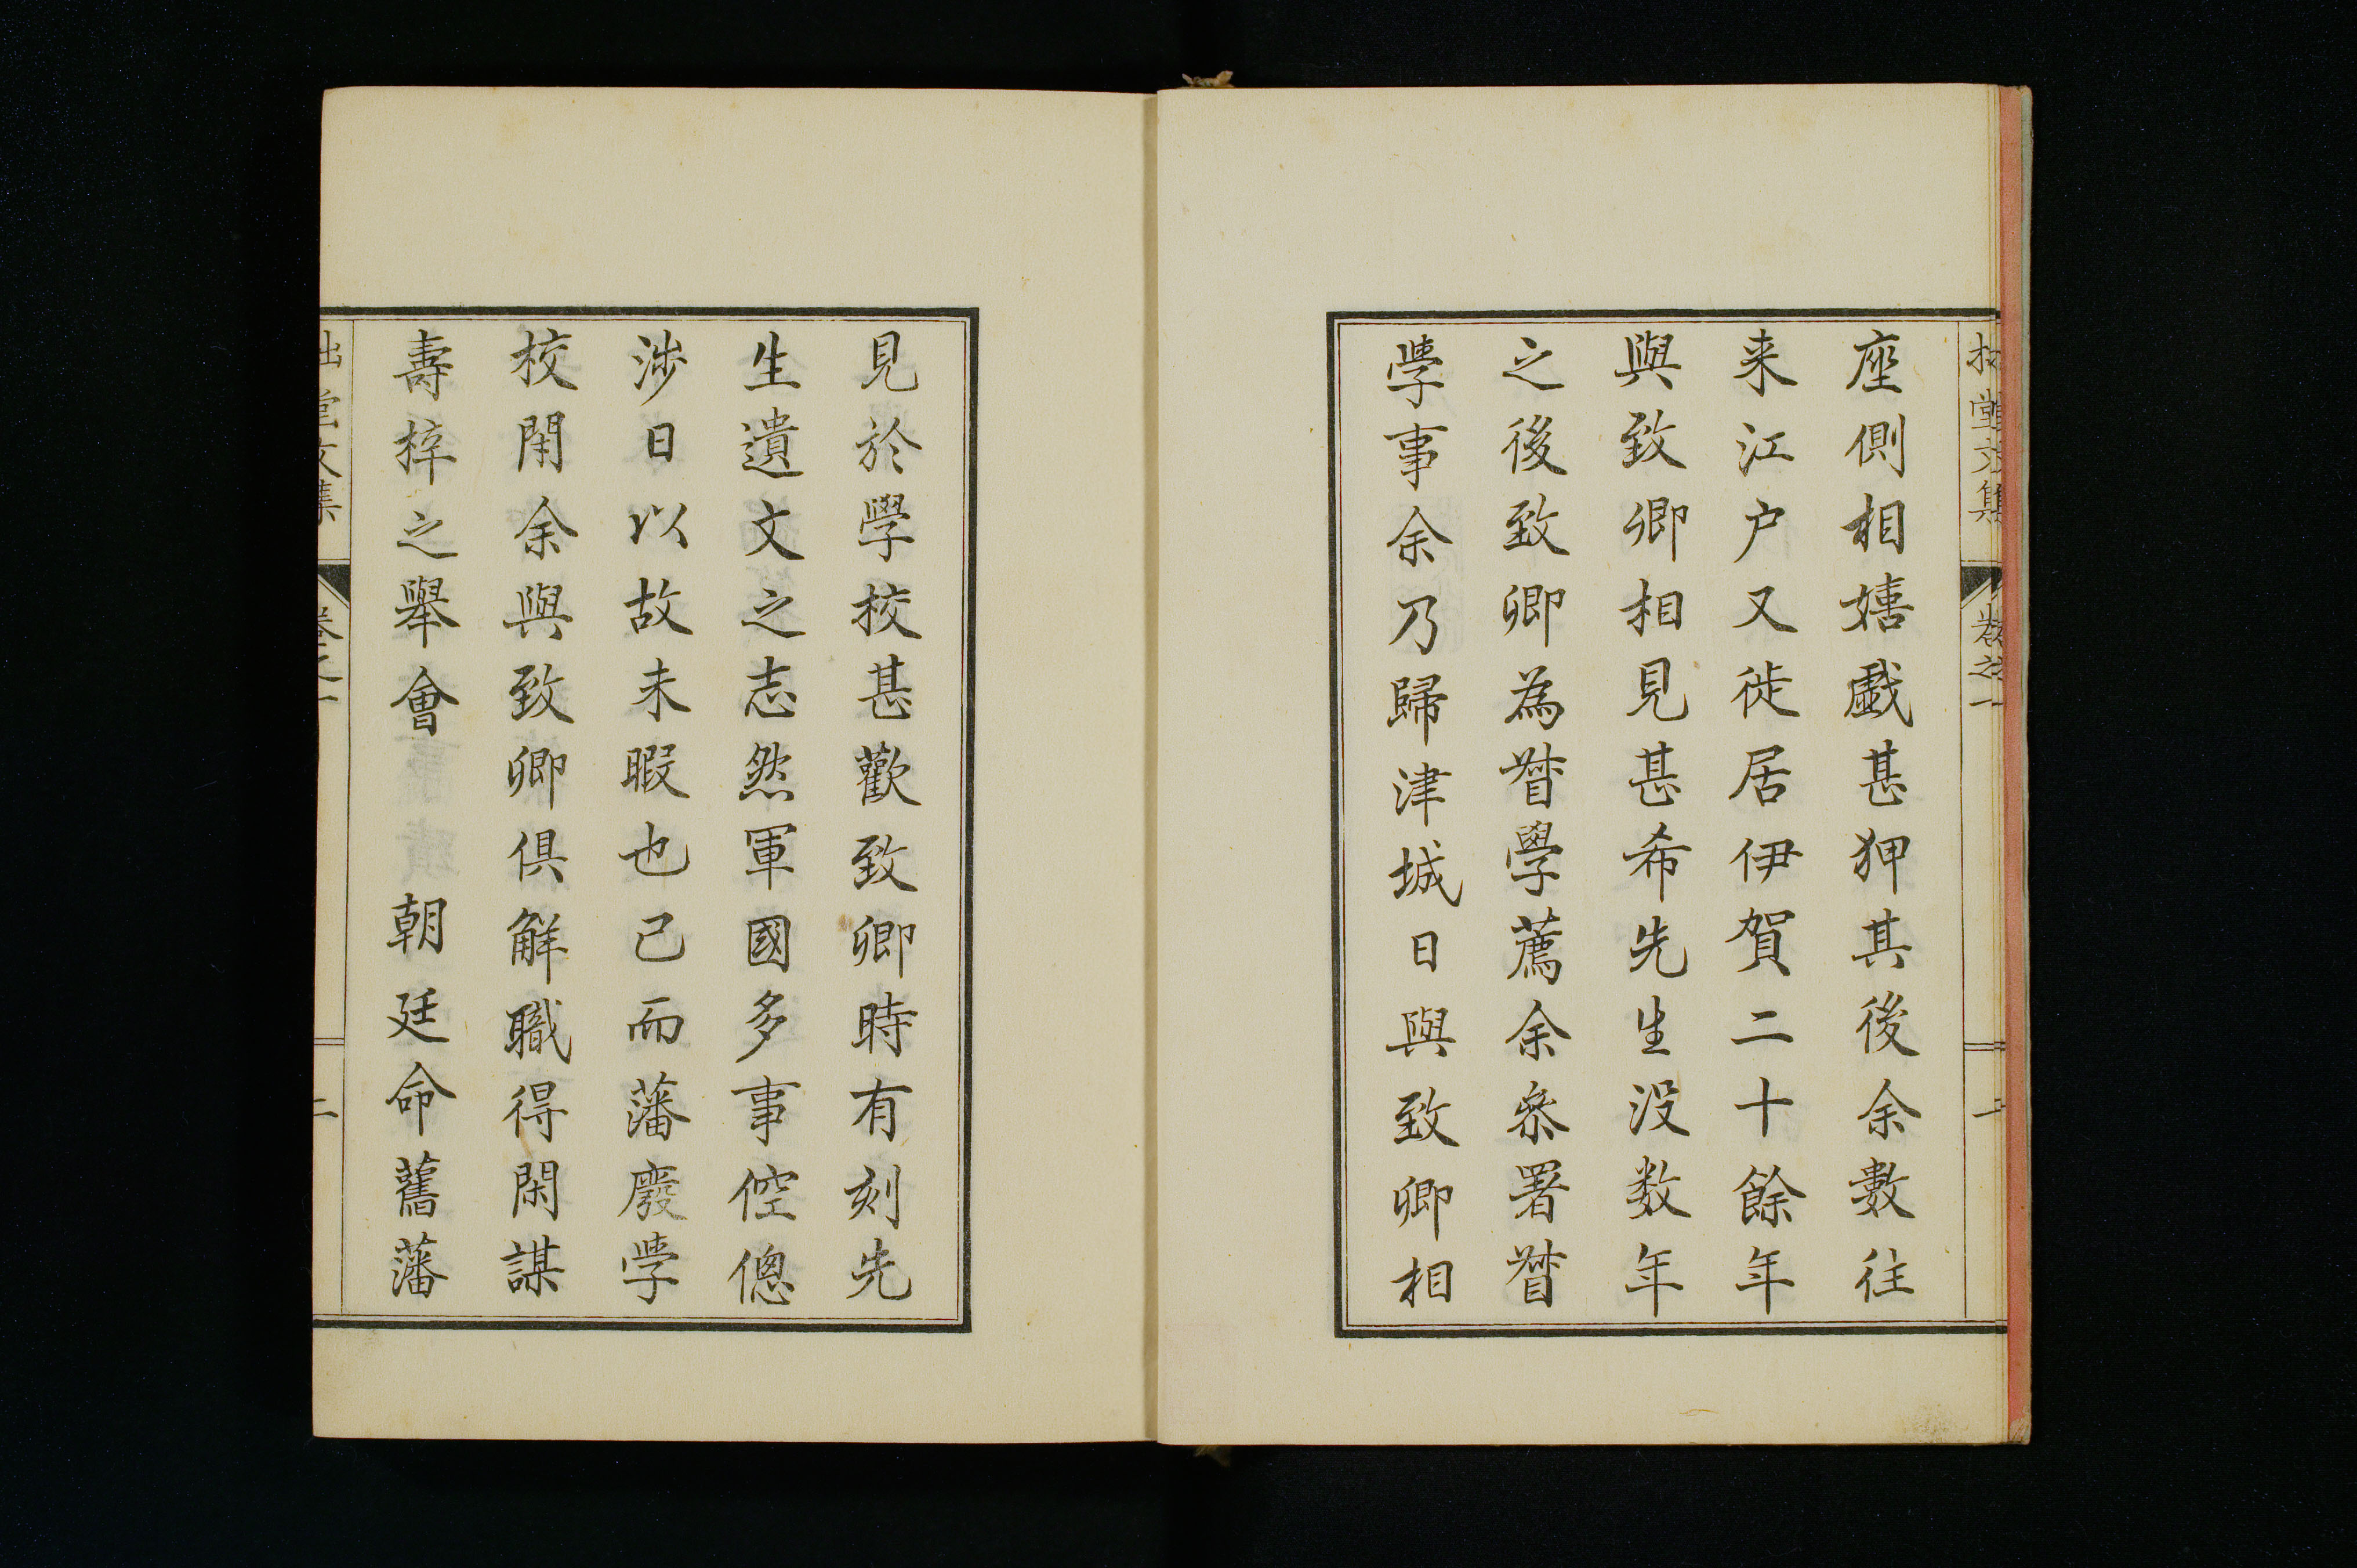 拙堂文集 卷之一 一
座側相嬉戲甚狎其後余數往
来江戸又徙居伊賀二十餘年
與致卿相見甚希先生没数年
之後致卿為督學薦余叅署督
学事余乃歸津城日與致卿相
見於學校甚歡致卿時有刻先
生遺文之志然軍國多事倥傯
渉日以故未暇也已而藩廢学
校閇余與致卿俱解職得閑謀
壽梓之舉會　朝廷命舊藩
拙堂文集 卷之一 二